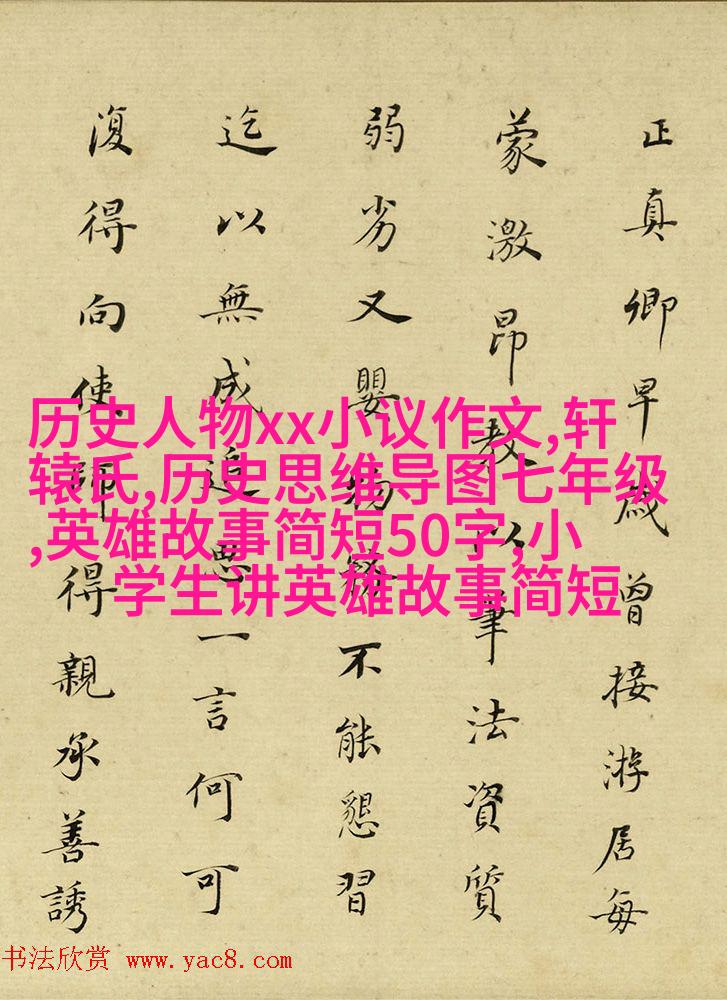 正真卿早歲曾接游居每
蒙激昂教以筆法資質
弱劣又嬰物務不能懇習
迄以無成追思一言何可
復得向使師得親承善誘
历史人物xx小议作文,轩
辕氏,历史思维导图七年级
,英雄故事简短50字,小
学生讲英雄故事简短
书法欣赏 www.yac8.com